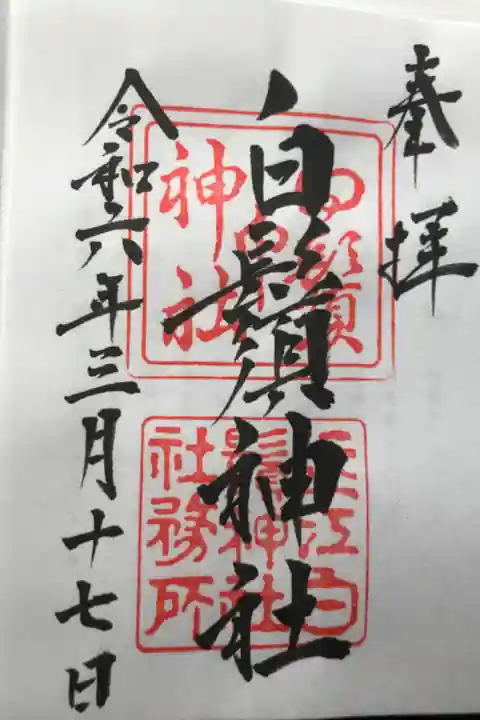 奉拝
白鬚神社
令和六年三月十七日
近江白
鬚神社
社務所